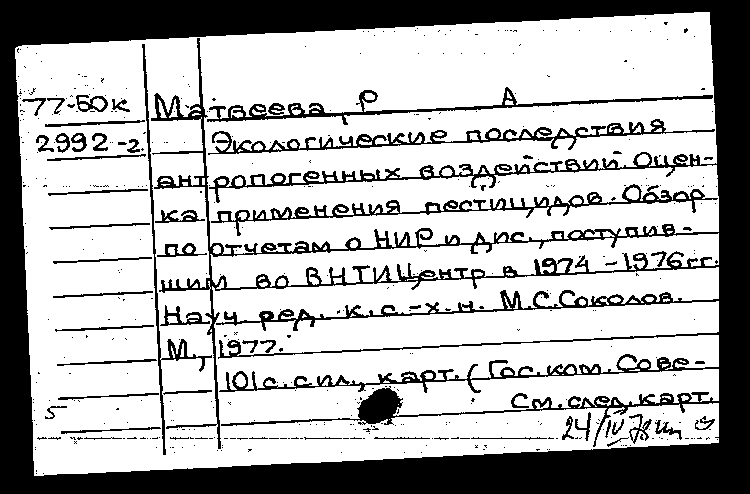 77-60к Матвеева, Р А
2992-2 Экологические последствия
антропогенных воздействий. Оцен-
ка применения пестицидов. Обзор
по отчетам о НИР и дис., поступив-
шим во ВНТИЦентр в 1974 - 1976гг.
Науч. ред. к.с.-х.н. М.С.Соколов.
М., 1977.
101с. с ил., карт. (Гос. ком. Сове-
См. след. карт.
5
24/IV 78